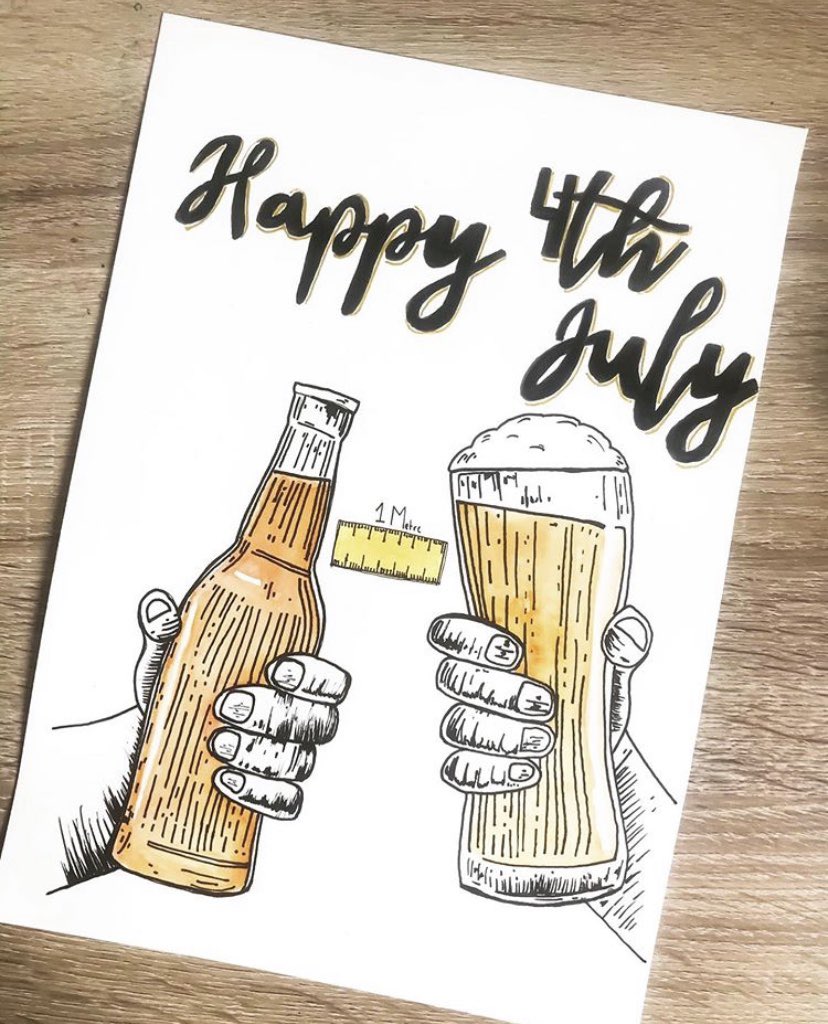 Happy 4th
July
1 Metre